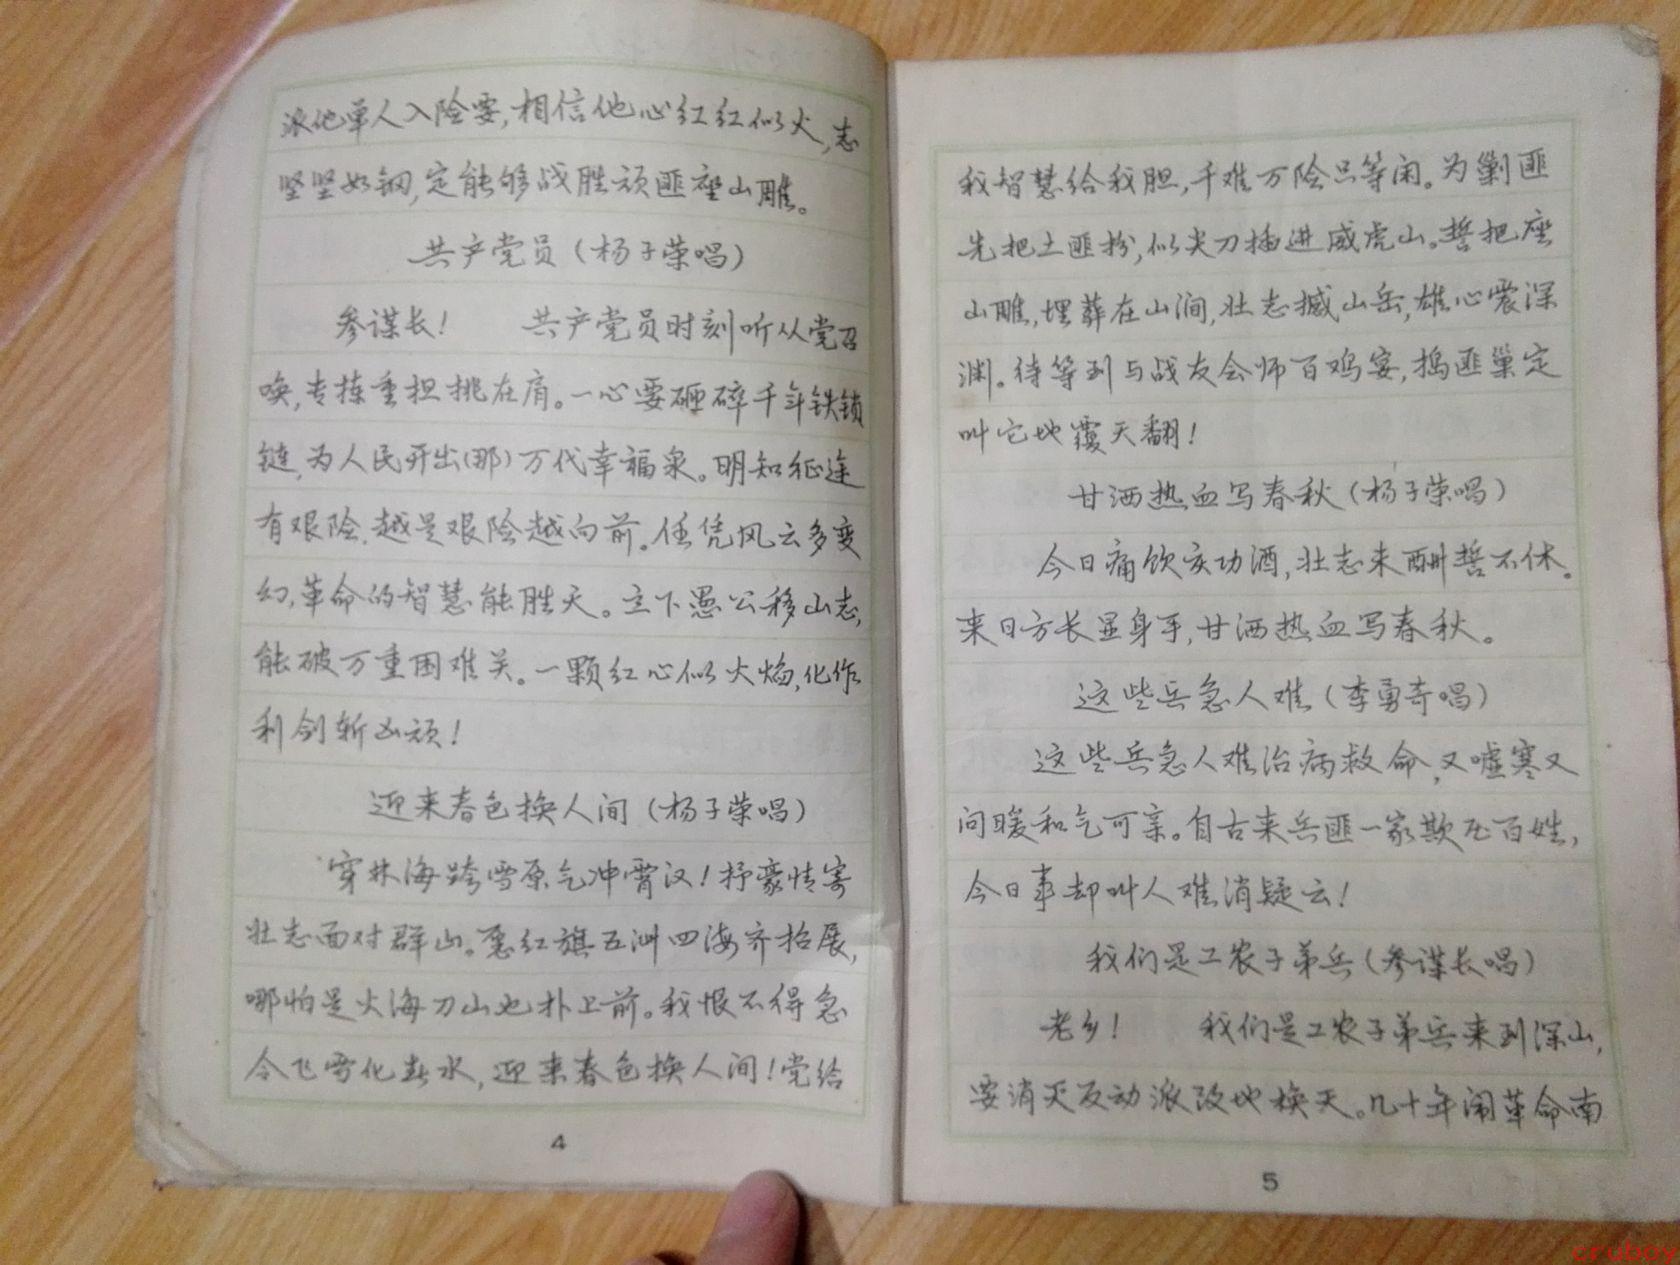 派他单人入险要,相信他心红红似火,志
坚坚如钢,定能够战胜顽匪座山雕。
共产党员(杨子荣唱)
参谋长! 共产党员时刻听从党召
唤,专拣重担挑在肩。一心要砸碎千年铁锁
链,为人民开出(那)万代幸福泉。明知征途
有艰险,越是艰险越向前。任凭风云多变
幻,革命的智慧能胜天。立下愚公移山志,
能破万重困难关。一颗红心似火焰,化作
利剑斩凶顽!
迎来春色换人间(杨子荣唱)
穿林海跨雪原气冲霄汉!抒豪情寄
壮志面对群山。愿红旗五洲四海齐招展,
哪怕是火海刀山也扑上前。我恨不得急
令飞雪化春水,迎来春色换人间!党给
4
我智慧给我胆,千难万险只等闲。为剿匪
先把土匪扮,似尖刀插进威虎山。誓把座
山雕,埋葬在山涧,壮志撼山岳,雄心震深
渊。待等到与战友会师百鸡宴,捣匪巢定
叫它地覆天翻!
甘洒热血写春秋(杨子荣唱)
今日痛饮庆功酒,壮志未酬誓不休。
来日方长显身手,甘洒热血写春秋。
这些兵急人难(李勇奇唱)
这些兵急人难治病救命,又嘘寒又
问暖和气可亲。自古来兵匪一家欺压百姓,
今日事却叫人难消疑云!
我们是工农子弟兵(参谋长唱)
老乡! 我们是工农子弟兵来到深山,
要消灭反动派改地换天。几十年闹革命南
5
crubov